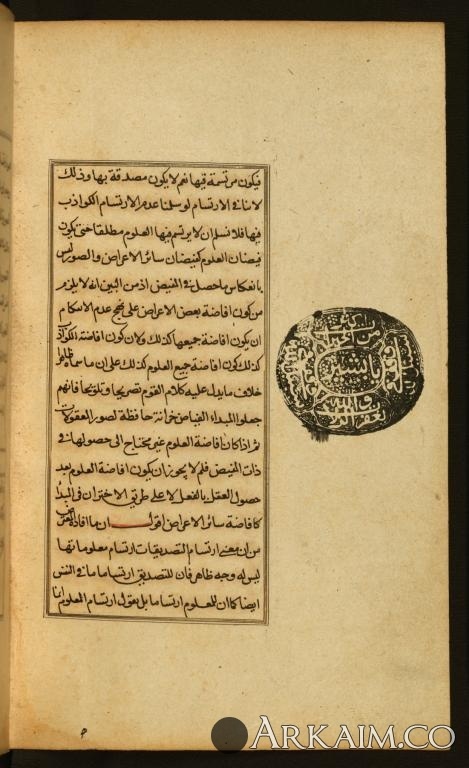 فيكون مرتسمة فيها نعم لا يكون مصدقة بها وذلك
لا ينافى الارتسام لو سلمنا عدم الارتسام الكواذب
فيها فلا نسلم ان لا يرتسم فيها العلوم مطلقا حتى يكون
فيضان العلوم كفيضان سائر الاعراض والصور ليس
بانعكاس ما حصل فى المفيض اذ من البين انه لا يلزم
من كون افاضة بعض الاعراض على نهج عدم الارتسام
ان يكون افاضة جميعها كذلك ولا ن كون افاضة الكواذب
كذلك كون افاضة جميع العلوم كذلك على ان ما سماه ظاهرا
خلاف ما يدل عليه كلام القوم تصريحا وتلويحا فانهم
جعلوا المبداء الفياض خزانة حافظة لصور المعقولات
ثم اذا كان افاضة العلوم غير محتاج الى حصولها فى
ذات المفيض فلم لا يجوز ان يكون افاضة العلوم بعد
حصول العقل بالفعل لا على طريق الاختزان فى المبدأ
كافاضة سائر الاعراض اقول ان ما افاده
من ان معنى ارتسام التصديقات ارتسام معلوماتها
ليس له وجه ظاهر فان للتصديق ارتساما ما فى النفس
ايضا كما ان للمعلوم ارتساما بل نقول ارتسام المعلوم
ARKAIM.CO